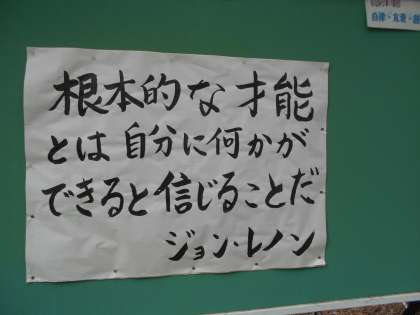 根本的な才能
とは自分に何かが
できると信じることだ
ジョン・レノン